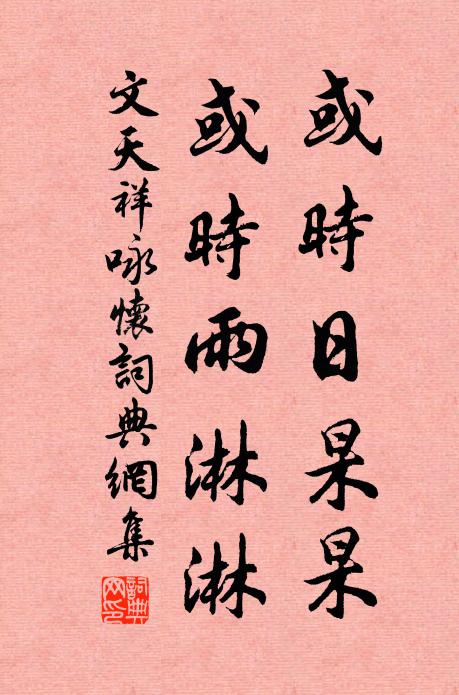 或時日杲杲
或時雨淋淋
文天祥咏懷詞典網集
詞典
网印